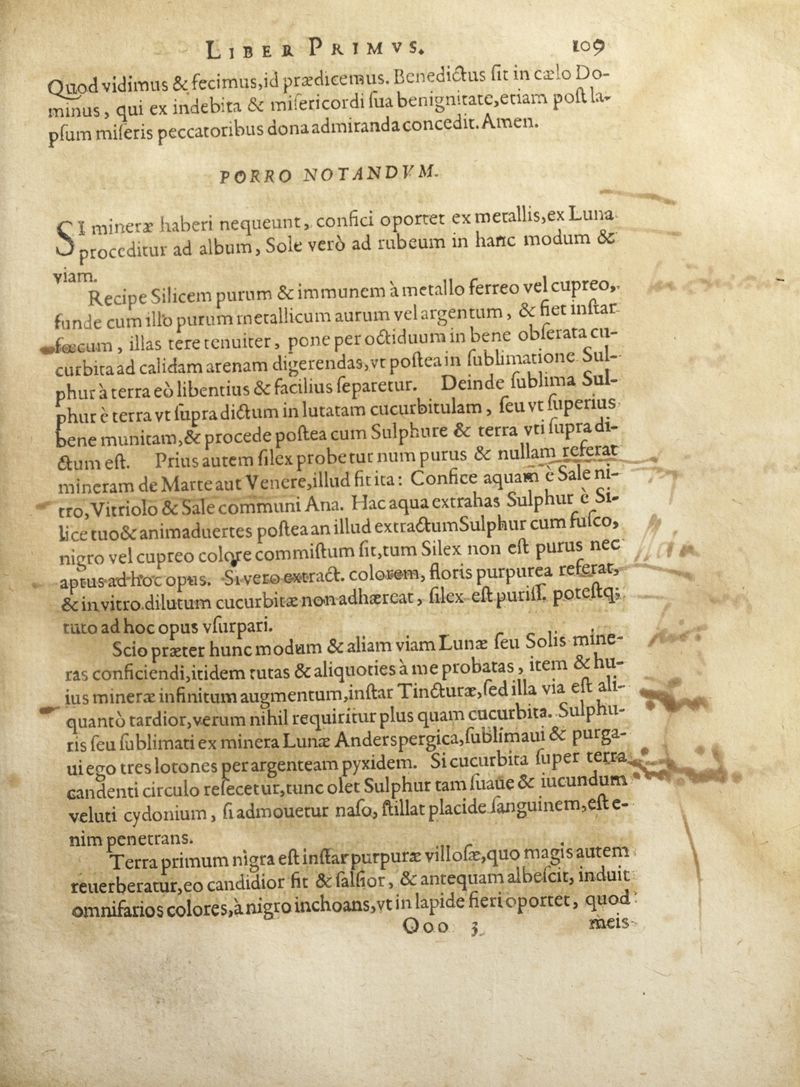 LIBER PRIMVS. 109
Quod vidimus & fecimus, id prædicemus. Benedictus sit in cælo Do-
minus, qui ex indebita & misericordi sua benignitate, etiam post la-
psum miseris peccatoribus dona admiranda concedit. Amen.
PORRO NOTANDVM.
SI mineræ haberi nequeunt, confici oportet ex metallis, ex Luna
proceditur ad album, Sole verò ad rubeum in hanc modum &
viam.
Recipe Silicem purum & immunem à metallo ferreo vel cupreo,
funde cum illo purum metallicum aurum vel argentum, & fiet instar
fæcum, illas tere tenuiter, pone per octiduum in bene obserata cu-
curbita ad calidam arenam digerendas, vt postea in sublimatione Sul-
phur à terra eò libentius & facilius separetur. Deinde sublima Sul-
phur è terra vt supra dictum in lutatam cucurbitulam, seu vt superius
bene munitam, & procede postea cum Sulphure & terra vti supra di-
ctum est. Prius autem silex probetur num purus & nullam referat
mineram de Marte aut Venere, illud fit ita: Confice aquam è Sale ni-
tro, Vitriolo & Sale communi Ana. Hac aqua extrahas Sulphur è Si-
lice tuo & animaduertes postea an illud extractum Sulphur cum fusco,
nigro vel cupreo colore commistum sit, tum Silex non est purus nec
aptus ad hoc opus. Si vero extract. colorem, floris purpurea referat,
& in vitro dilutum cucurbitæ non adhæreat, silex est puriss. potestq;
tuto ad hoc opus vsurpari.
Scio præter hunc modum & aliam viam Lunæ seu Solis mine-
ras conficiendi, itidem tutas & aliquoties à me probatas, item & hu-
ius mineræ infinitum augmentum, instar Tincturæ, sed illa via est ali-
quantò tardior, verum nihil requiritur plus quam cucurbita. Sulphu-
ris seu sublimati ex minera Lunæ Anderspergica, sublimaui & purga-
ui ego tres lotones per argenteam pyxidem. Si cucurbita super terra
candenti circulo resecetur, tunc olet Sulphur tam suaue & iucundum
veluti cydonium, si admouetur naso, stillat placide sanguinem, est e-
nim penetrans.
Terra primum nigra est instar purpuræ villosæ, quo magis autem
reuerberatur, eo candidior fit & salsior, & antequam albescit, induit
omnifarios colores, à nigro inchoans, vt in lapide fieri oportet, quod
Ooo 3 meis-